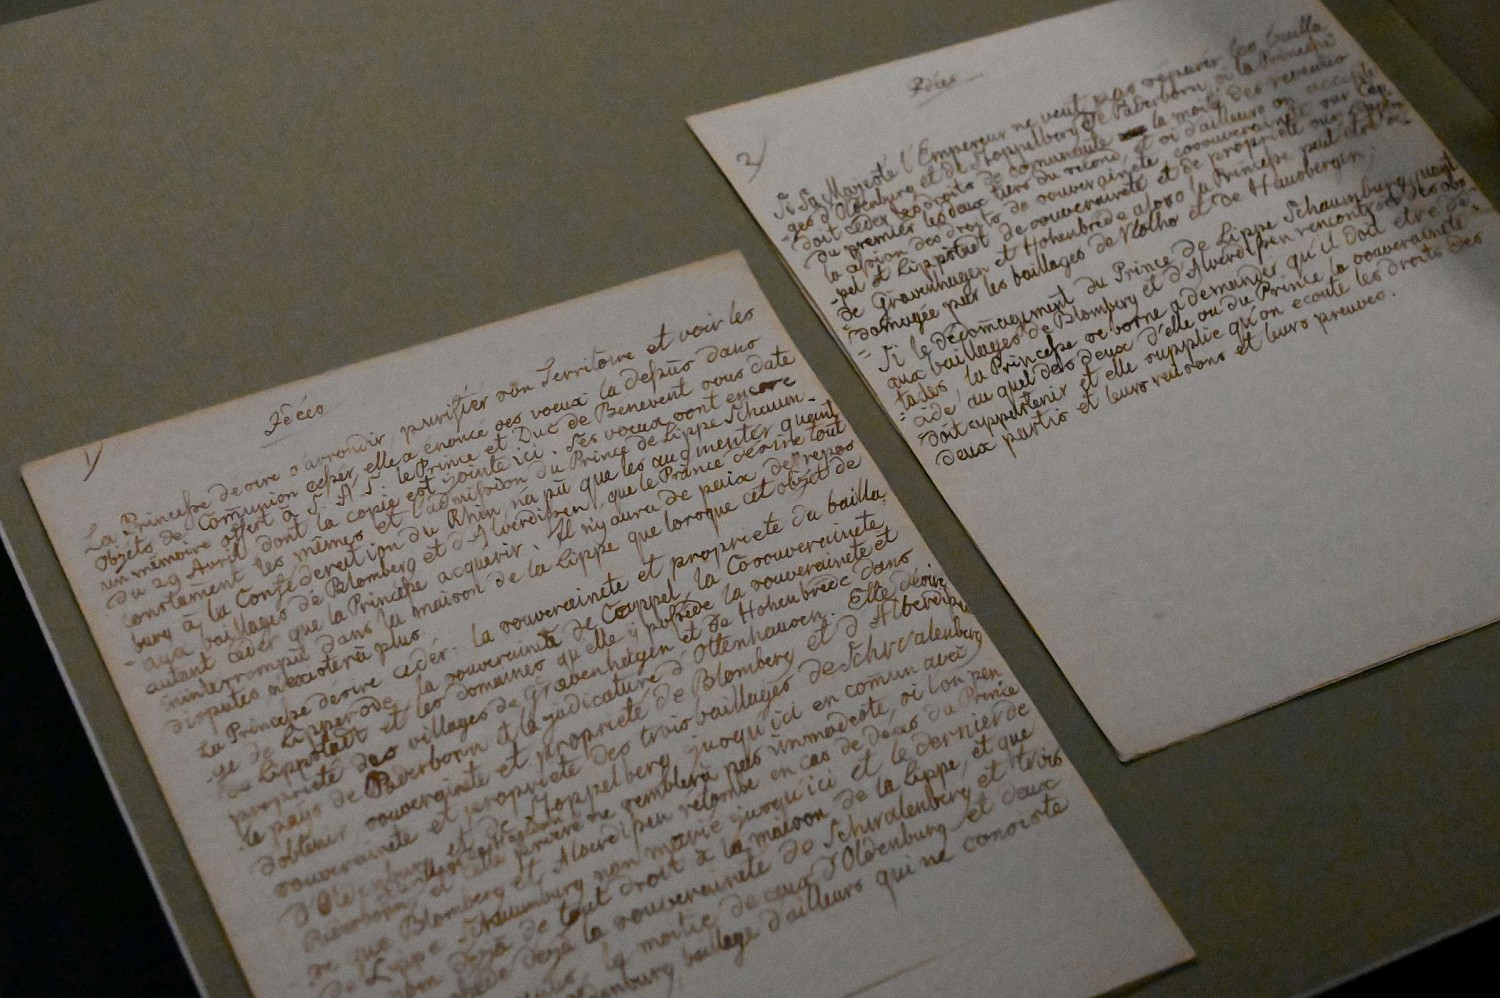 1)
Idées
La Princesse desire s'arrondir, purifier son Territoire et voir les
objets de Comunion cesser, elle a enoncé ses voeux là dessus dans
un mémoire offert à S. A. S. le Prince et Duc de Benevent sous date
du 29 Avril dont la copie est jointe ici. Ses voeux sont encore
constament les mêmes et l'admission du Prince de Lippe Schaum-
burg à la Confédération du Rhin, n'a pû que les augmenter quant
aux baillages de Blomberg et d'Alverdissen, que le Prince desire tout
autant céder que la Princesse acquérir. Il n'y aura de paix, de repos
ininterrompu dans la maison de la Lippe que lorsque cet objet de
disputes n'existera plus.
La Princesse desire céder. la souveraineté et proprieté du bailla-
ge de Lipperode, la souveraineté de Cappel, la Cosouveraineté
de Lippstadt et les domaines qu'elle y possède la souveraineté et
proprieté des villages de Grevenhagen et de Hohenbrede dans
le pays de Paderborn et la judicature d'Ottenhausen. Elle désire
d'obtenir souveraineté et proprieté de Blomberg et d'Alverdissen
souveraineté et proprieté des trois baillages de Schwalenberg
d'Oldenburg et de Stoppelberg jusqu'ici en comun avec
Paderborn, et cette prière ne semblera pas immodeste, si l'on pen-
se que Blomberg et Alverdissen retombe en cas de décès du Prince
de Lippe Schaumburg non marié jusqu'ici et le dernier de
nom déjà de tout droit à la maison de la Lippe, et que
déjà la souveraineté de Schwalenberg et trois
la moitié de ceux d'Oldenburg et deux
baillage d'ailleurs qui ne consiste
2)
Idées
Si Sa Majesté l'Empereur ne veut pas séparer les bailla-
ges d'Oldenburg et de Stoppelberg de Paderborn, si la Princesse
doit céder ses droits de comunauté la moitié des revenues
du premier les deux tiers du second, et si d'ailleurs on accepte
la cession des droits de souveraineté, cosouveraineté sur Cap-
pel et Lippstadt de souveraineté et de proprieté sur
de Grevenhagen et Hohenbrede alors la Princesse peut etre dé-
domagée par les baillages de Vlotho et de Hausbergen;
Si le dédomagement du Prince de Lippe Schaumburg quant
aux baillages de Blomberg et d'Alverdissen rencontroit des obs-
tacles la Princesse se borne à demander qu'il doit etre dé-
cidé au quel des deux d'elle ou du Prince la souveraineté
doit appartenir et elle supplie qu'on ecoute les droits des
deux partis et leurs raisons et leurs preuves.